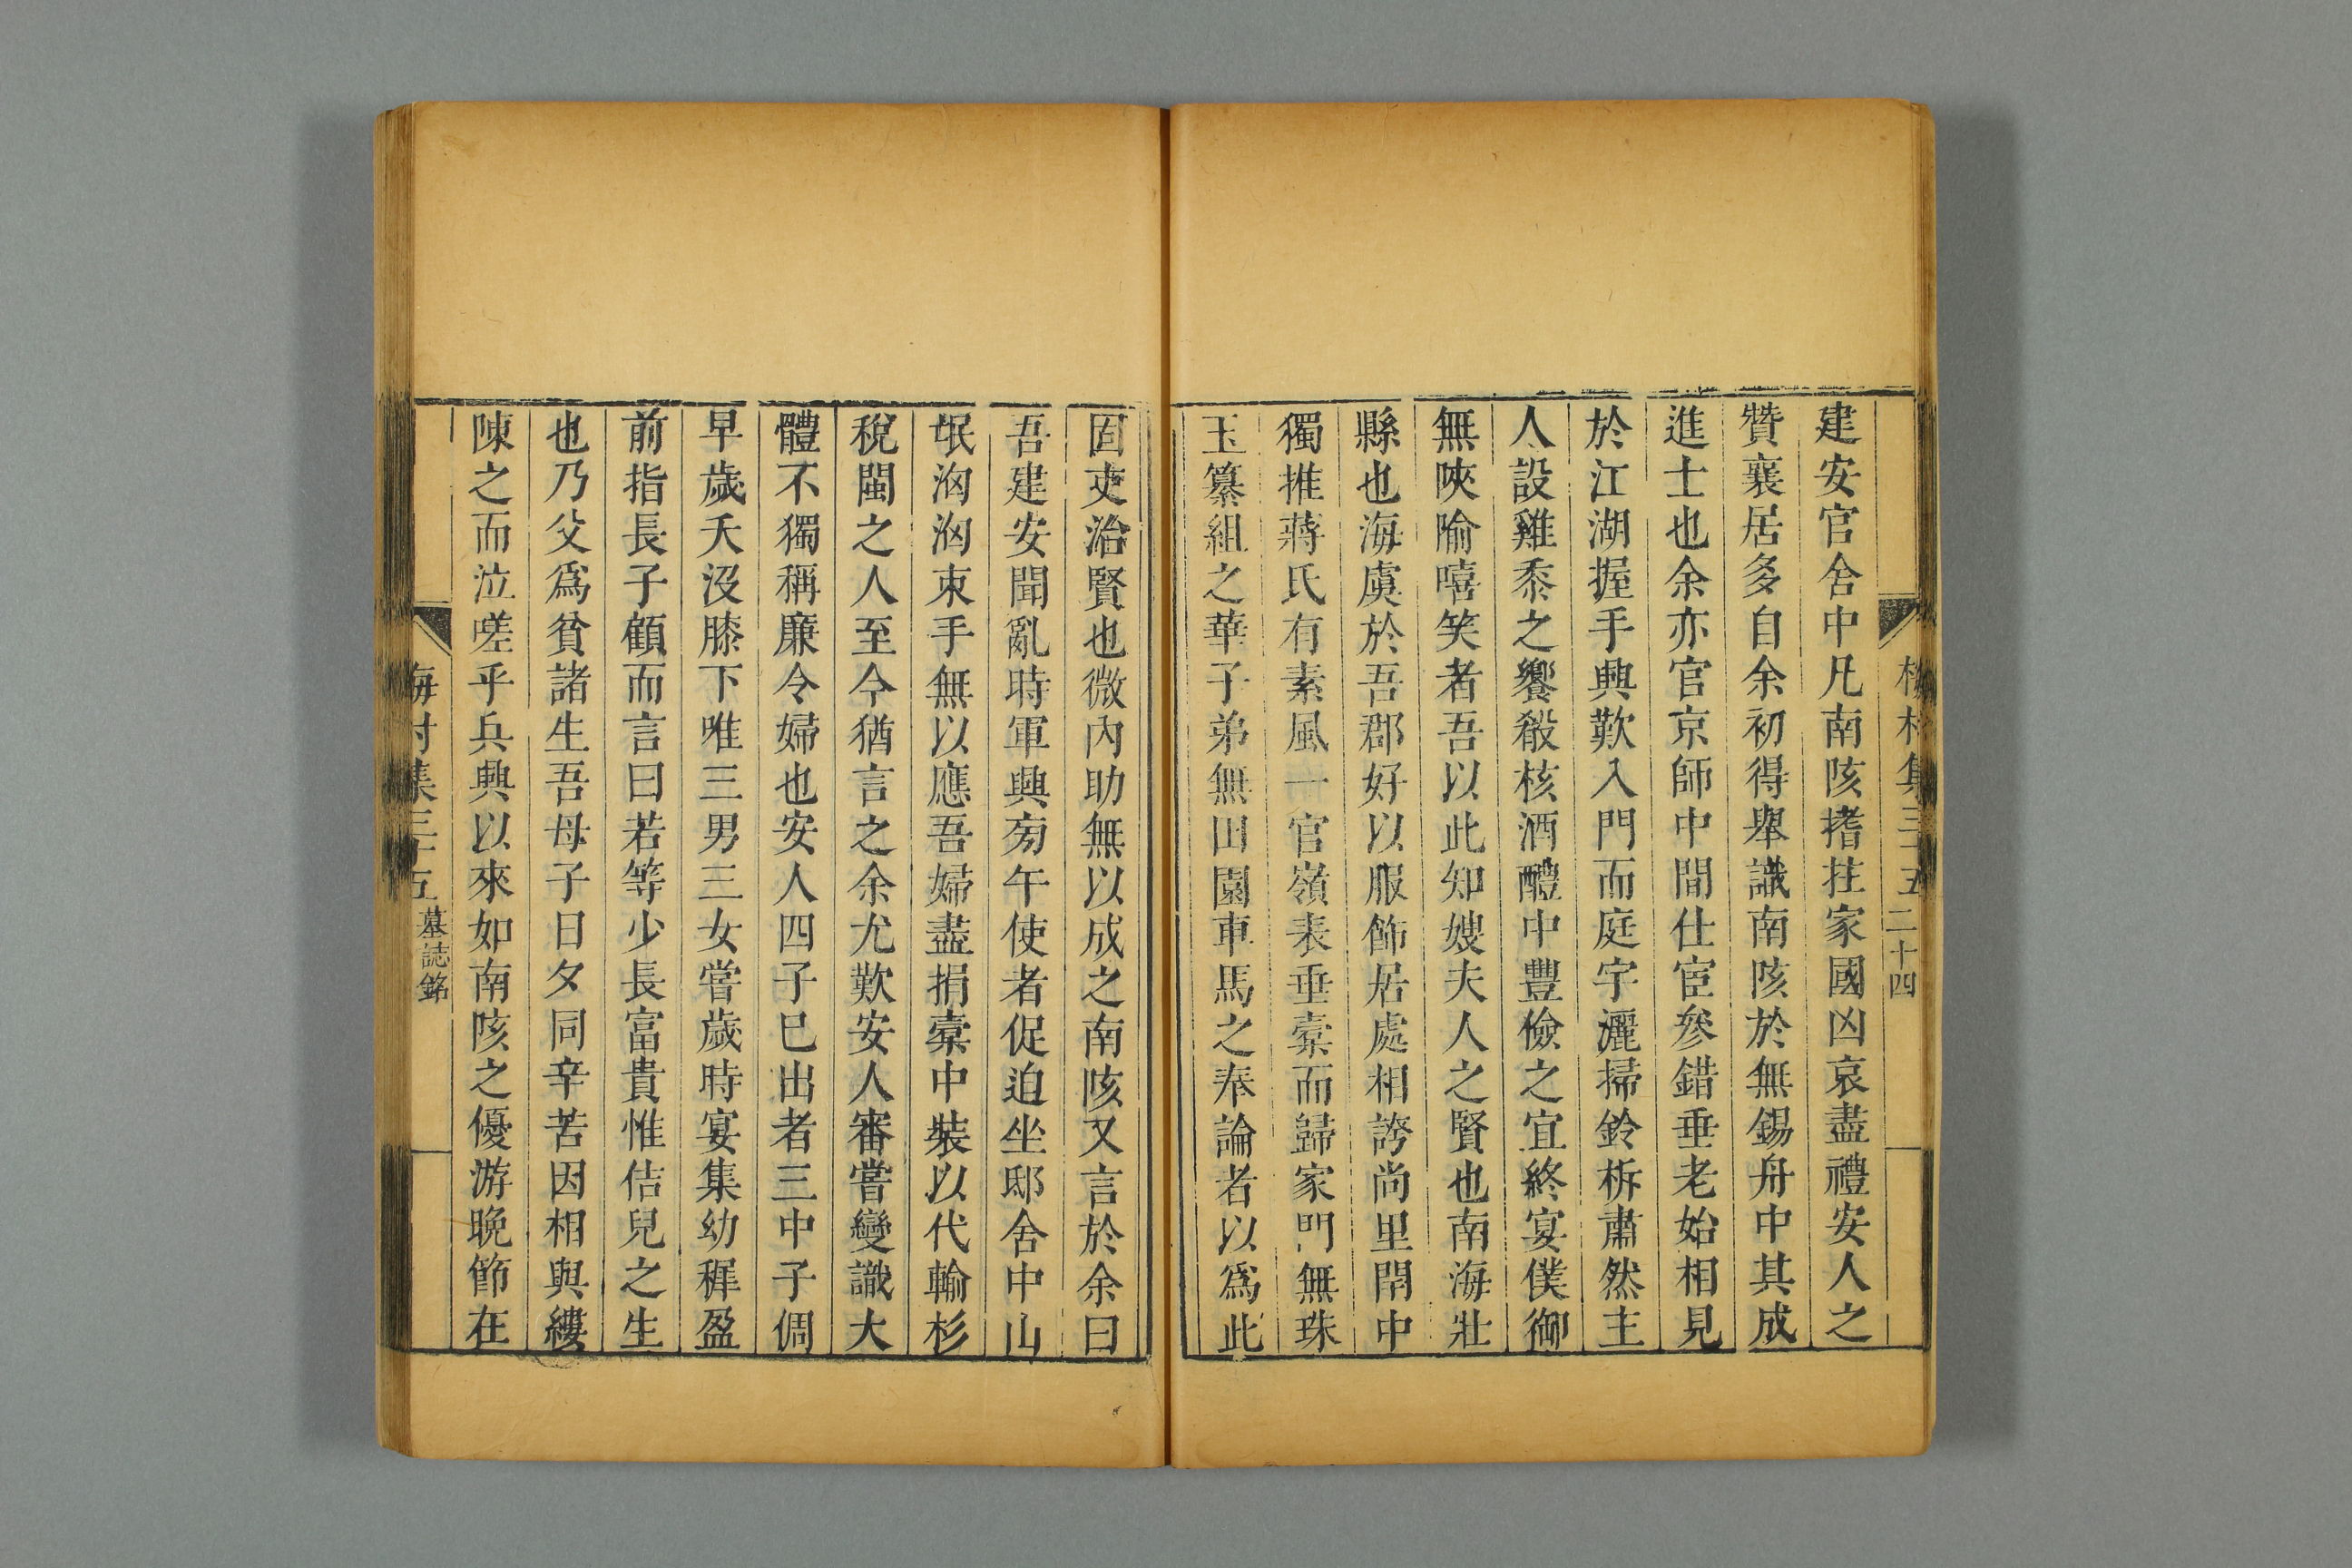 建安官舍中凡南陔搘拄家國凶哀盡禮安人之
贊襄居多自余初得舉識南陔於無錫舟中其成
進士也余亦官京師中間仕宦參錯垂老始相見
於江湖握手興歎入門而庭宇灑掃鈴柝肅然主
人設雞黍之饗殽核酒醴中豐儉之宜終宴僕御
無陝隃嘻笑者吾以此知嫂夫人之賢也南海壯
縣也海虞於吾郡好以服飾居處相誇尚里閈中
獨推蔣氏有素風一官嶺表垂橐而歸家門無珠
玉纂組之華子弟無田園車馬之奉論者以爲此
固吏治賢也微內助無以成之南陔又言於余曰
吾建安聞亂時軍興旁午使者促迫坐邸舍中山
氓洶洶束手無以應吾婦盡捐橐中裝以代輸杉
稅閩之人至今猶言之余尤歎安人審嘗變識大
體不獨稱廉令婦也安人四子巳出者三中子倜
早歲夭沒膝下唯三男三女嘗歲時宴集幼穉盈
前指長子顧而言曰若等少長富貴惟佶兒之生
也乃父爲貧諸生吾母子日夕同辛苦因相與縷
陳之而泣嗟乎兵興以來如南陔之優游晚節在
梅村集三十五 墓誌銘
二十四